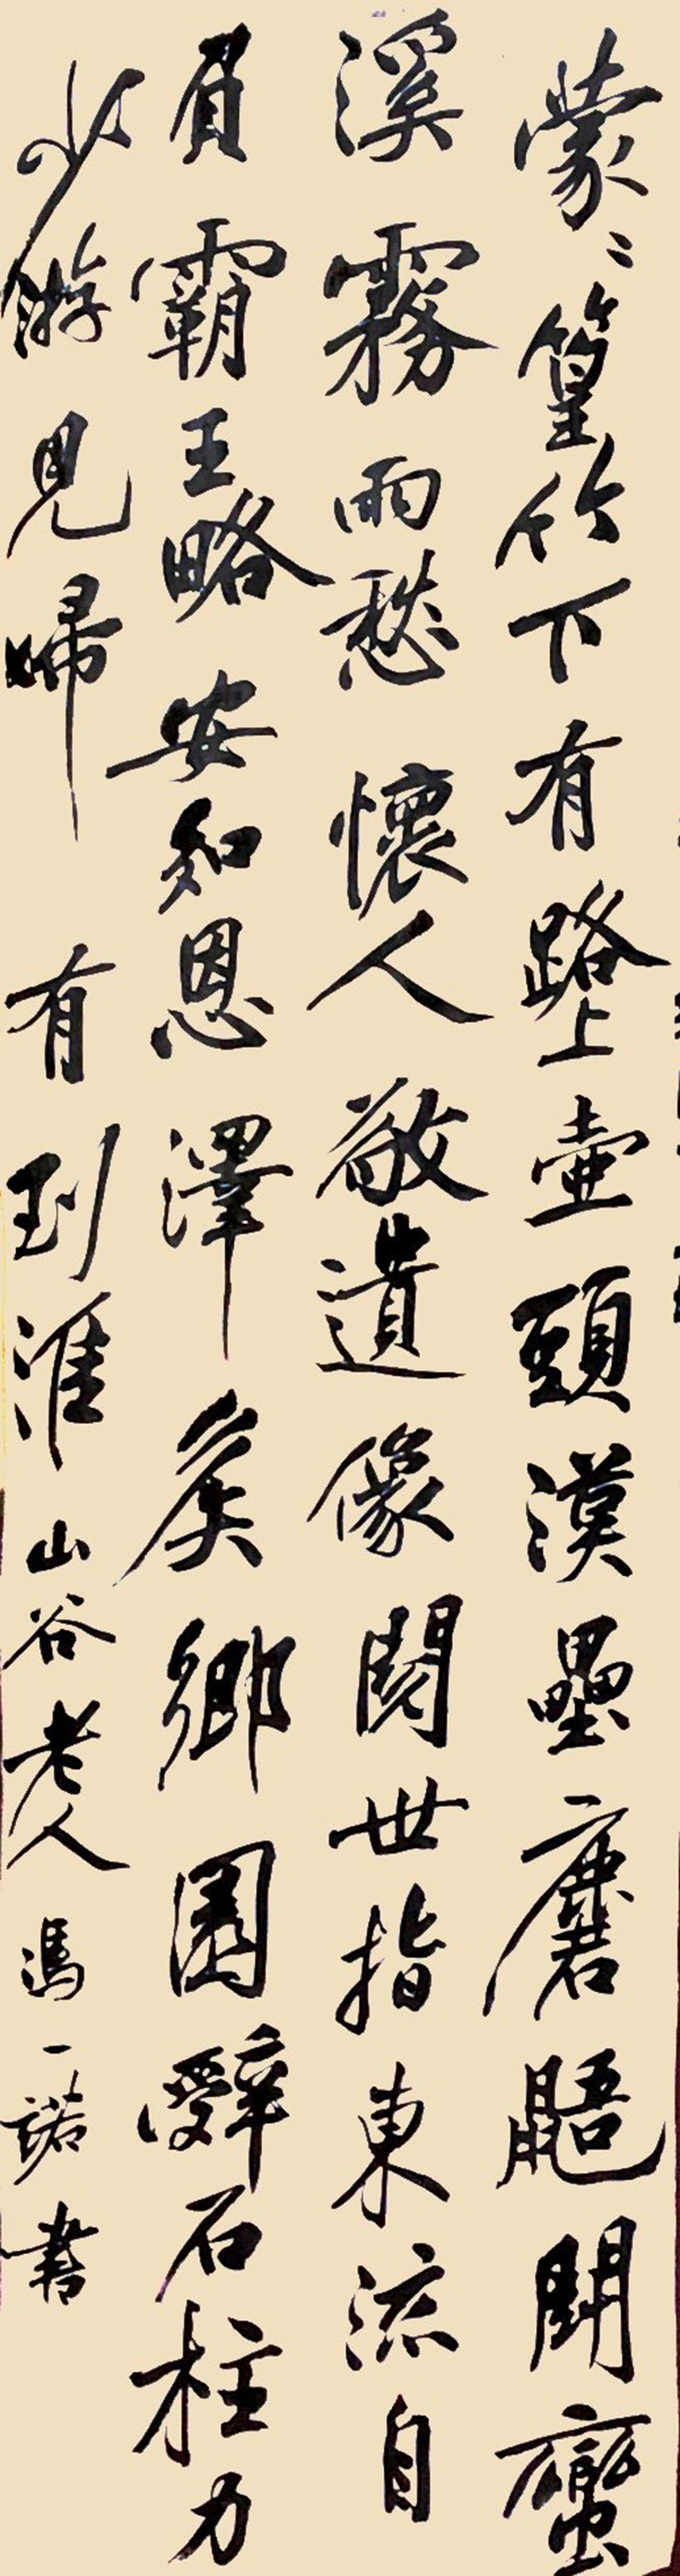 蒙〻篁竹下有路上壺頭漢壘麏鼯鬭蠻
溪霧雨愁懷人敬遺像閱世指東流自
負霸王略安知恩澤矦鄉園辭石柱力
少游見歸有到淮山谷老人馮一諾書